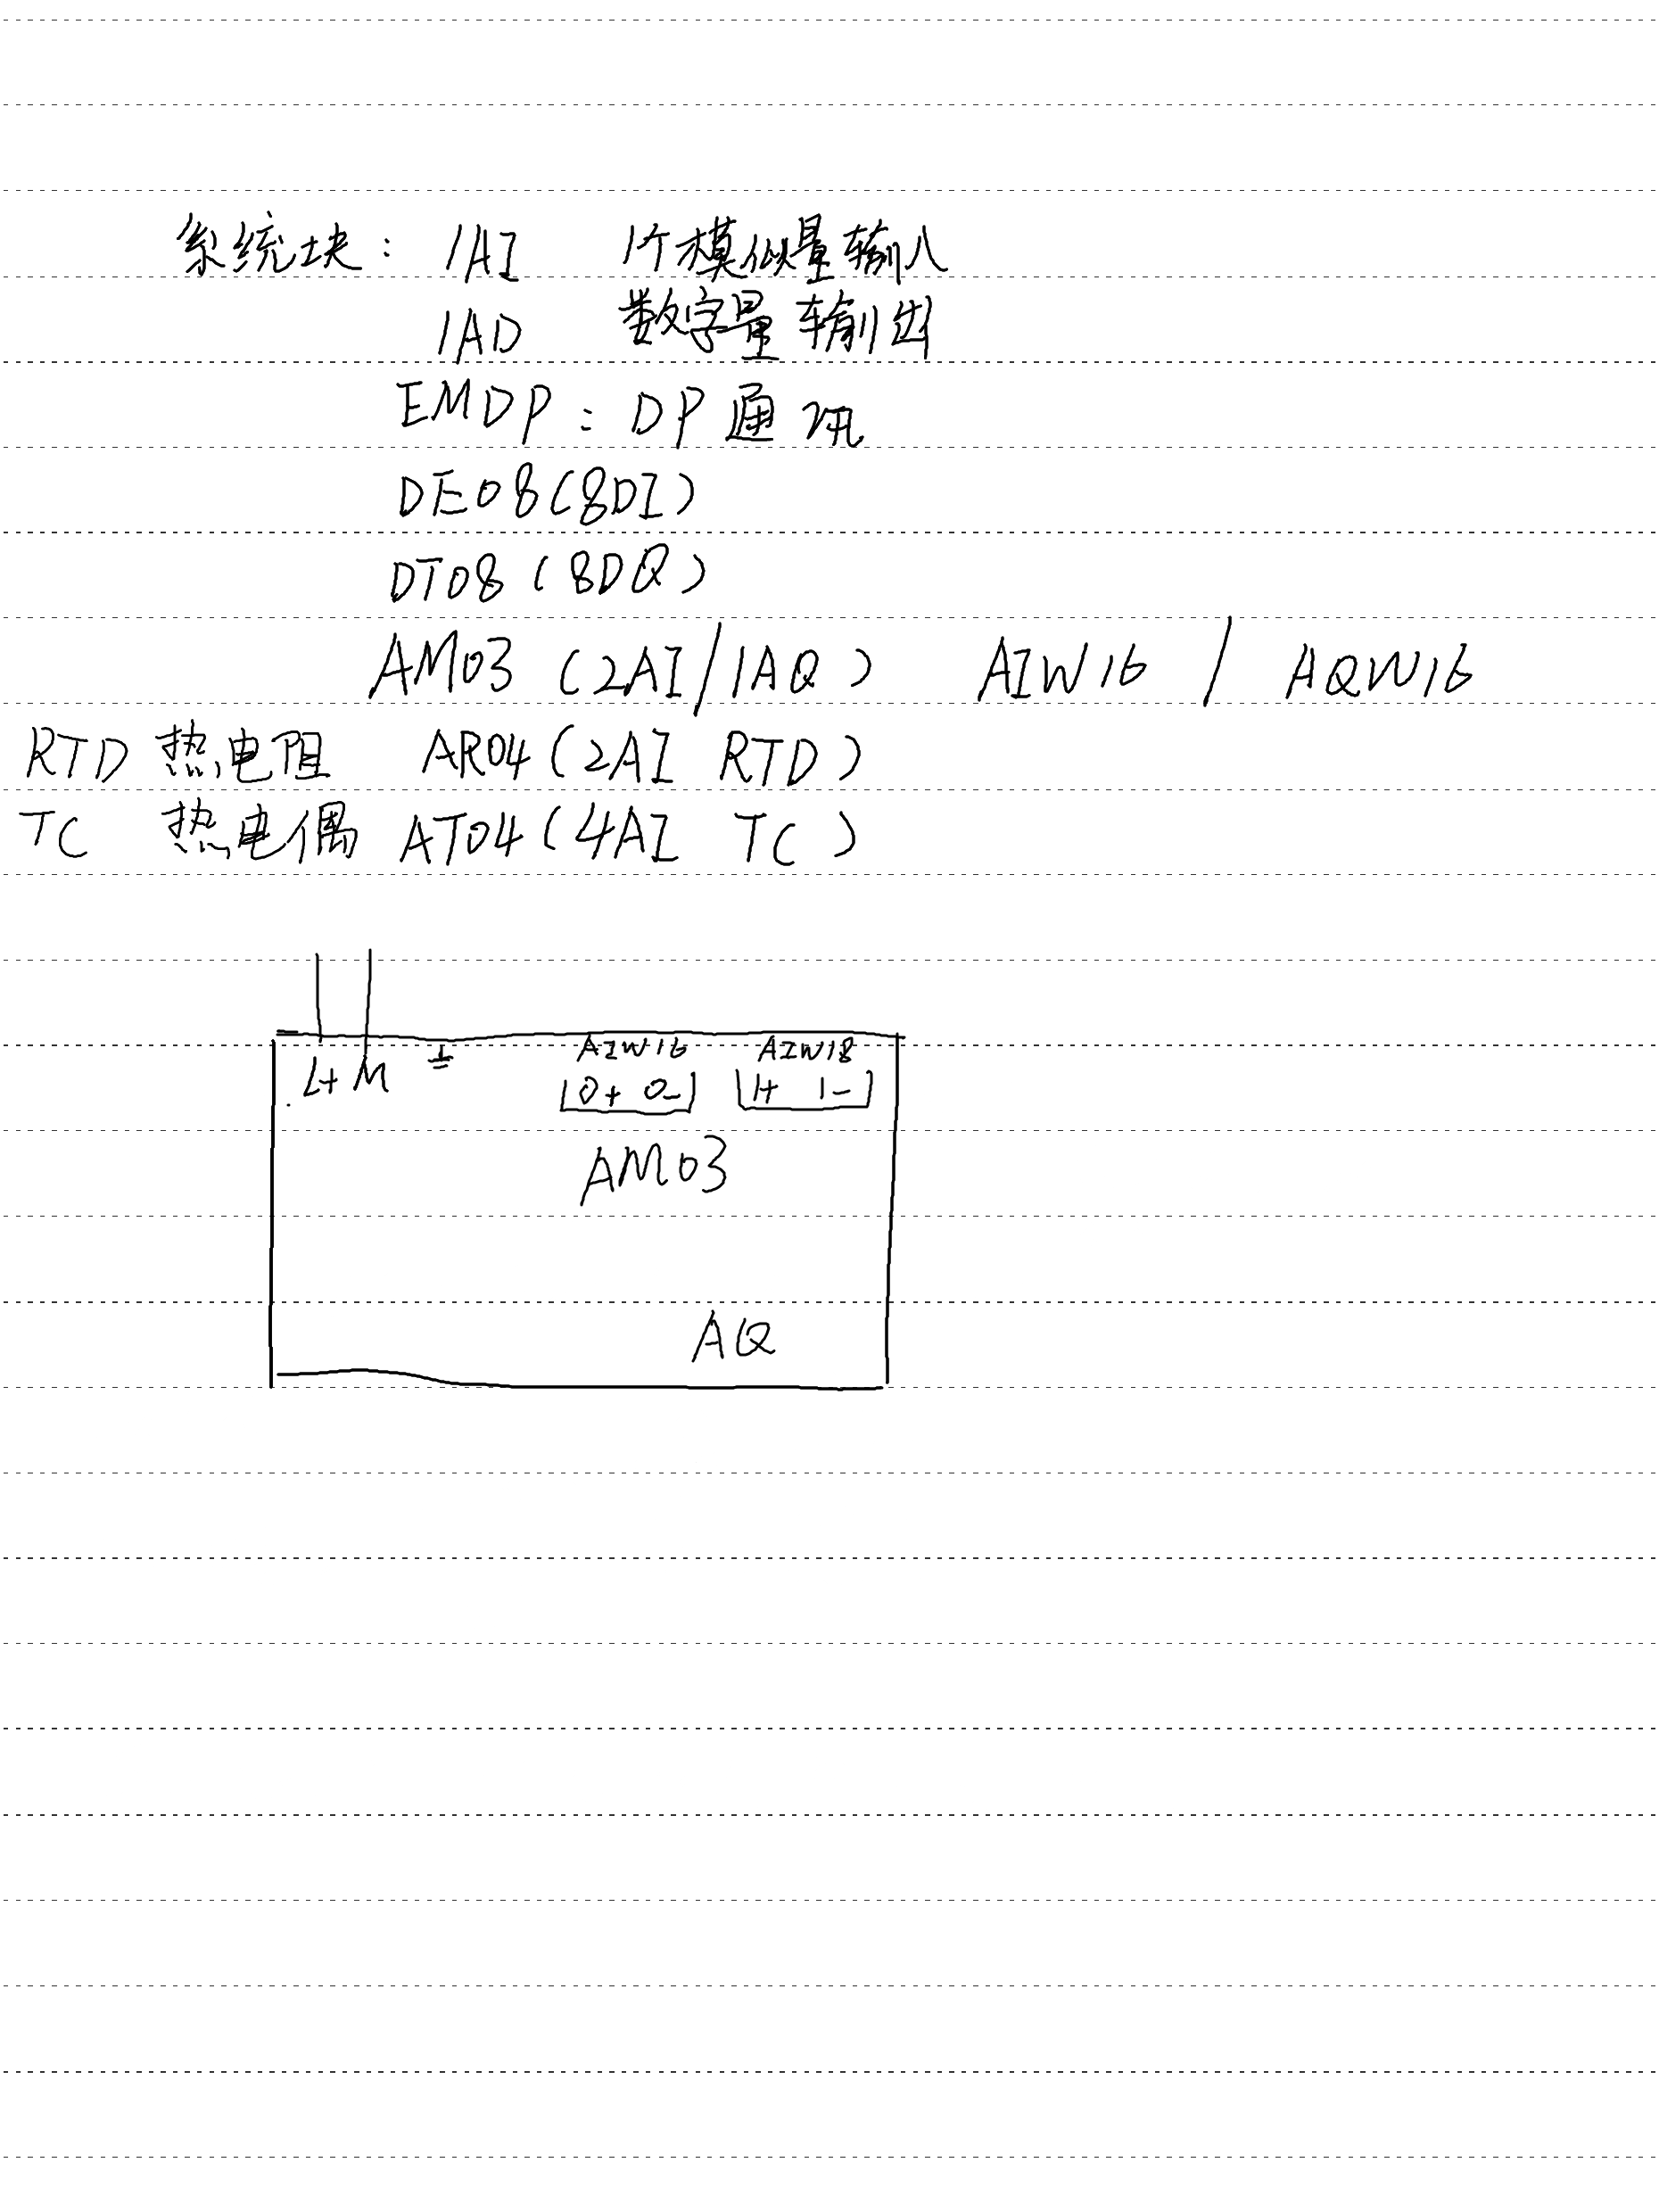 系统块： 1AI 1个模似量输入
1AD 数字量输出
EMDP：DP通讯
DE08（8DI）
DT08（8DQ）
AM03（2AI/1AQ） AIW16 / AQW16
RTD 热电阻 AR04（2AI RTD）
TC 热电偶 AT04（4AI TC）
L+ M AIW16 AIW18
0+ 0- 1+ 1-
AM03
AQ